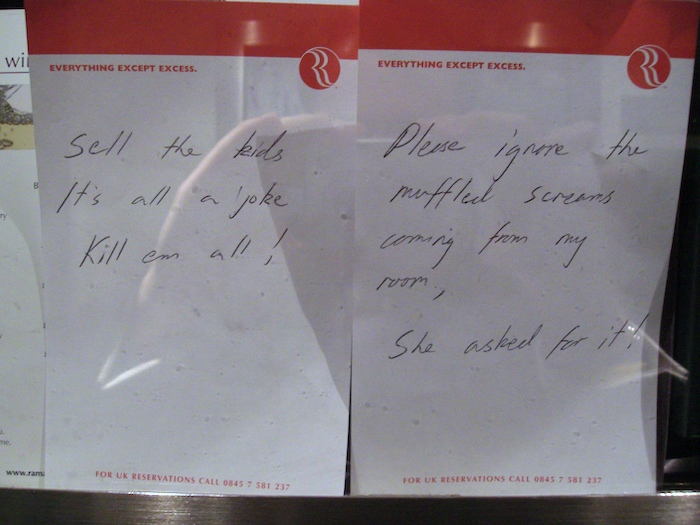 EVERYTHING EXCEPT EXCESS.
Sell the kids
It's all a joke
Kill em all!
FOR UK RESERVATIONS CALL 0845 7 581 237
EVERYTHING EXCEPT EXCESS.
Please ignore the
muffled screams
coming from my
room,
She asked for it!
FOR UK RESERVATIONS CALL 0845 7 581 237